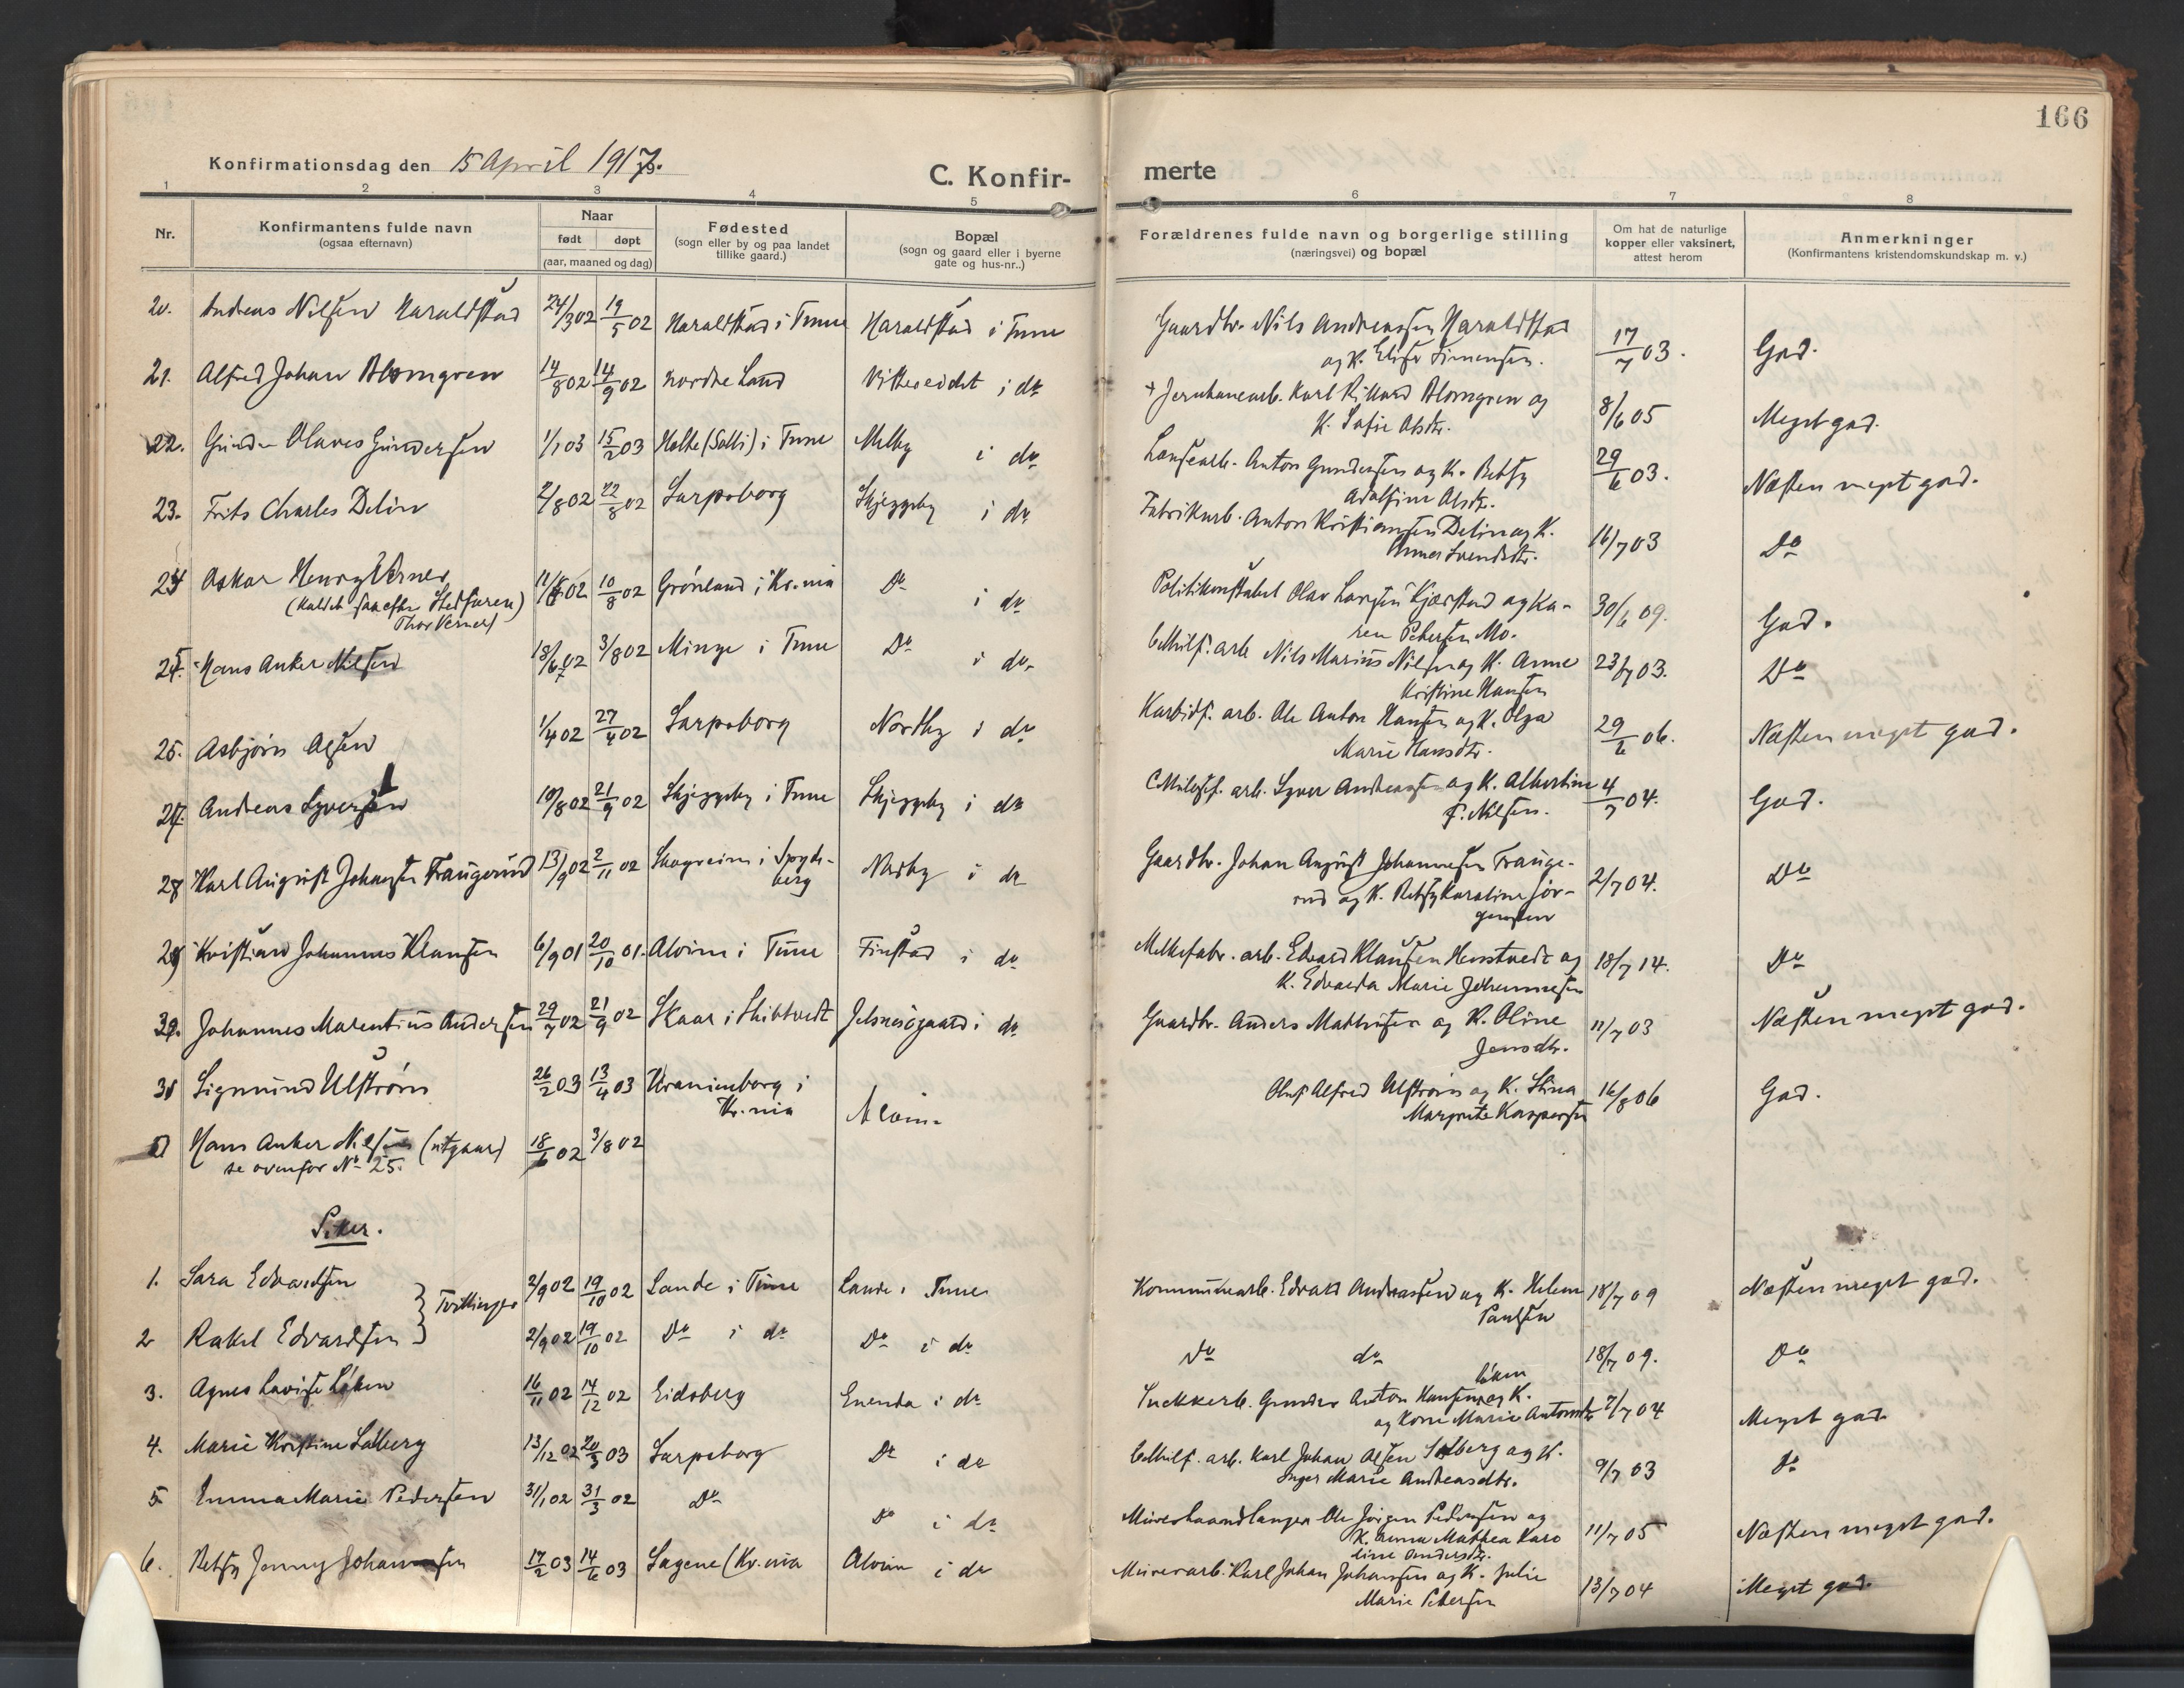 166
Konfirmationsdag den 15 April 1917.
C. Konfir-
merte
1 2 3 4 5 6 7 8
Nr.
Konfirmantens fulde navn
(ogsaa efternavn)
Naar
født døpt
(aar, maaned og dag)
Fødested
(sogn eller by og paa landet
tillike gaard.)
Bopæl
(sogn og gaard eller i byerne
gate og hus-nr..)
Forældrenes fulde navn og borgerlige stilling
(næringsvei) og bopæl
Om hat de naturlige
kopper eller vaksinert,
attest herom
Anmerkninger
(Konfirmantens kristendomskundskap m. v.)
20. Andreas Nilsen Haraldstad 24/3 02 19/5 02 Haraldstad i Tune Haraldstad i Tune Gaardbr. Nils Andreassen Haraldstad 17/7 03. God.
og K. Elise Simensen.
21. Alfred Johan Blomgren 14/8 02 14/9 02 Nordre Land Visterseidet i do + Jernbanearb. Karl Rikard Blomgren og 8/6 05 Meget god.
K. Sofie Olsdtr.
22. Gunder Olaves Gundersen 1/1 03 15/2 03 Holte (Solli) i Tune Melby i do Løusearb. Anton Gundersen og K. Betsy 29/6 03. Næsten meget god.
Adolfine Olsdtr.
23. Frits Charles Delin 2/8 02 22/8 02 Sarpsborg Skjeggeby i do Fabrikarb. Anton Kristiansen Delin og K. 16/7 03 Do
Anna Svendsdtr.
24 Oskar Henry Verner 11/6 02 10/8 02 Grønland i Kr.nia Do i do Politikonstabel Olav Larsen Kjærstad og Ka- 30/6 09. God.
(kaldet sig efter Stedfaren)
Thor Verner)
ren Petersen Mo.
25. Hans Anker Nilsen 18/6 02 3/8 02 Minge i Tune Do i do. Cellulf. arb. Nils Marius Nilsen og K. Anne 23/7 03. Do
Kristine Hansen
26. Asbjørn Olsen 1/4 02 27/4 02 Sarpsborg Nordby i do Karbidf. arb. Ole Anton Hansen og K. Olga 29/6 06. Næsten meget god.
Marie Hansdtr.
27. Andreas Syversen 10/8 02 21/9 02 Skjeggeby i Tune Skjeggeby i do Cellulosef. arb. Syver Andreassen og K. Albertine 4/7 04. God.
F. Nilsen.
28 Karl August Johansen Traugerud 13/9 02 2/11 02 Skogreim i Spyde- Nordby i do Gaardbr. Johan August Johannesen Trauge- 2/7 04. Do
berg
rud og K. Betsy Karoline Jør-
gensen
29 Kristian Johannes Klausen 6/9 01 20/10 01. Alvim i Tune Finstad i do Melkefabr. arb. Edvard Klausen Henstvedt og 18/7 14. Do
K. Edvarda Marie Johannesen
30. Johannes Marentius Andersen 29/7 02 21/9 02 Skaar i Skiptvedt Jelsnesøgaard i do Gaardbr. Anders Mathisen og K. Oline 11/7 03 Næsten meget god.
Jensdtr.
31 Sigmund Ulstrøm 26/2 03 13/4 03 Uranienborg i Alvim Oluf Alfred Ulstrøm og K. Stina 16/8 06 God.
Kr.nia
Margrete Kaspersen
Hans Anker Nilsen (utgaar) 18/6 02 3/8 02
se ovenfor No 25.
Piker.
1. Sara Edvardsen } Tvillinger 2/9 02 19/10 02 Lande i Tune Lande i Tune Kommunearb. Edvard Andreassen og K. Helene 18/7 09 Næsten meget god.
Paulsen
2 Rakel Edvardsen 2/9 02 19/10 02 Do i do Do i do Do do 18/7 09. Do
3. Agnes Lovise Løken 16/11 02 14/12 02 Eidsberg Enenda i do Snekkerb. Gunder Anton Hansen Løken og K. 7/7 04 Meget god
og Kone Marie Antonsdtr
4. Marie Kristine Solberg 13/12 02 20/3 03 Sarpsborg Do i do Cellulf. arb. Karl Johan Olsen Solberg og K. 9/7 03 Do
Inger Marie Andreasdtr.
5 Emma Marie Pedersen 31/1 02 31/3 02 Do Do i do Murerhaandlanger Ole Jørgen Pedersen og 11/7 05 Næsten meget god.
K. Anna Mathea Karo
line Andersdtr.
6. Betsy Jenny Johansen 17/2 03 14/6 03 Sagene (Kr.nia Alvim i do Murerarb. Karl Johan Johansen og K. Julie 13/7 04 Meget god.
Marie Petersen